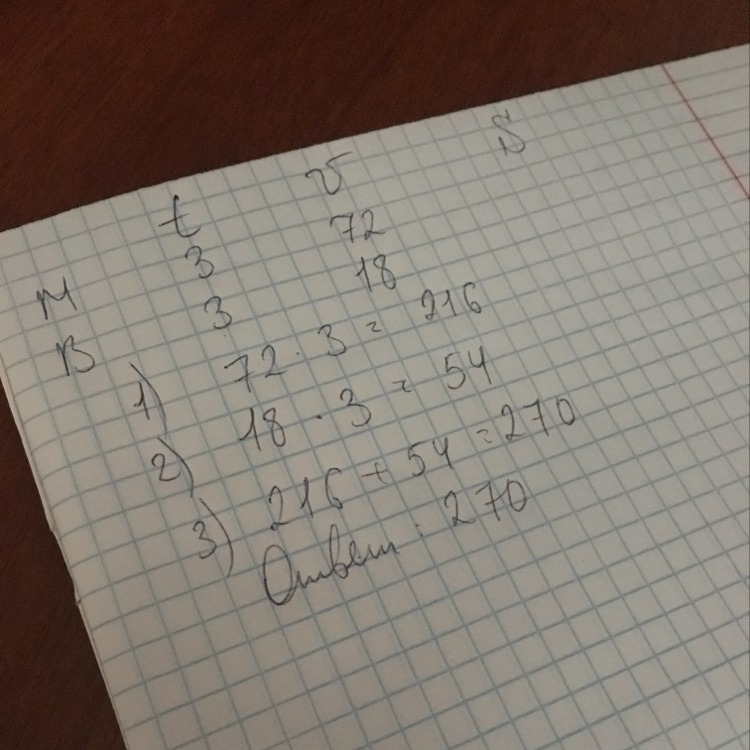 t v S
М 3 72
В 3 18
1) 72 · 3 = 216
2) 18 · 3 = 54
3) 216 + 54 = 270
Ответ: 270